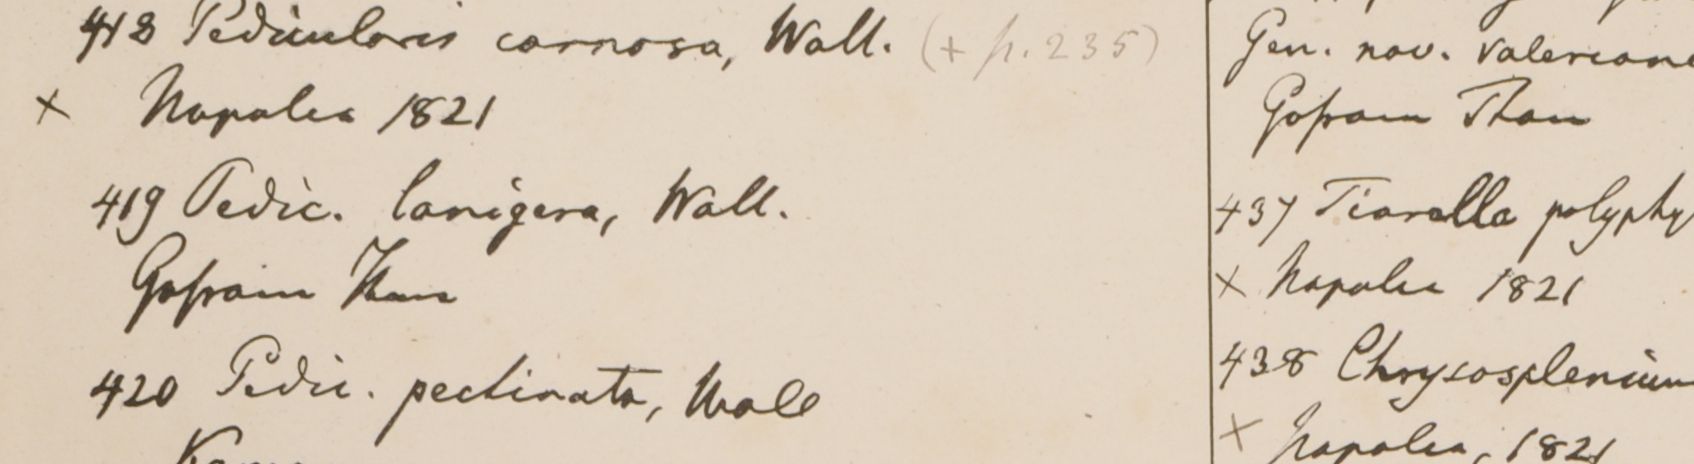 418 Pedicularis carnosa, Wall. (+ p. 235)
× Napalia 1821
419 Pedic. lanigera, Wall.
Gosain Than
420 Pedic. pectinata, Wall
Gen. nov. Valeriane
Gosain Than
437 Tiarella polyphy
× Napalia 1821
438 Chrysosplenium
× Napalia, 1821